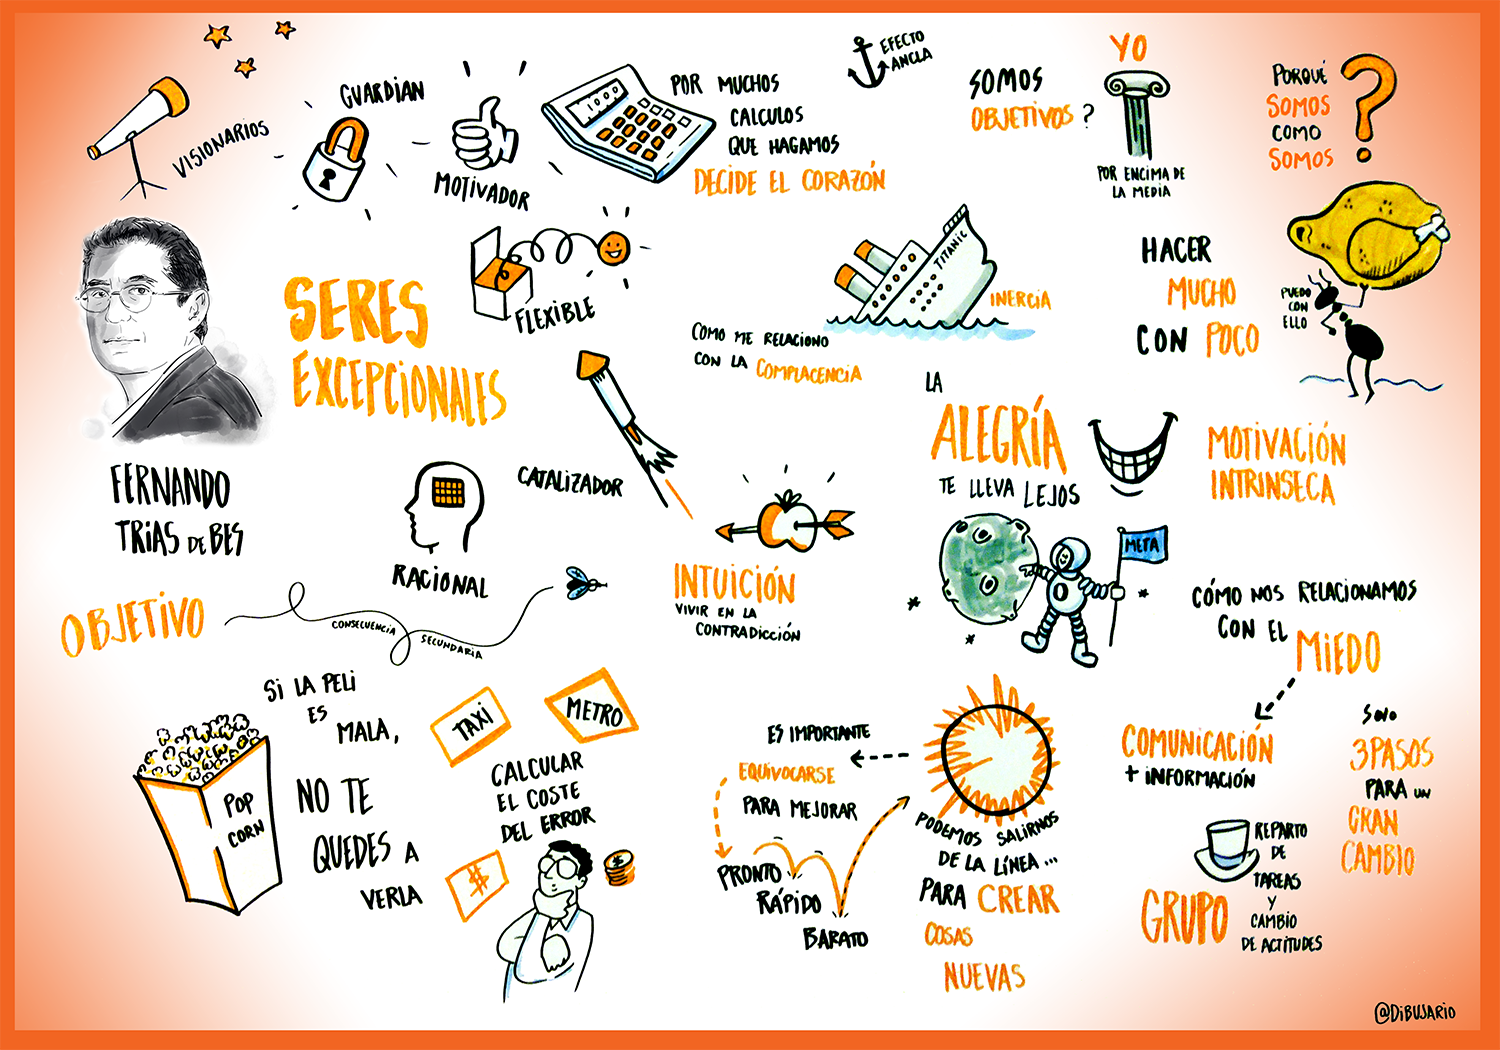 VISIONARIOS
GUARDIAN
MOTIVADOR
POR MUCHOS
CALCULOS
QUE HAGAMOS
DECIDE EL CORAZÓN
EFECTO
ANCLA
SOMOS
OBJETIVOS ?
YO
POR ENCIMA DE
LA MEDIA
PORQUÉ
SOMOS
COMO
SOMOS
?
SERES
EXCEPCIONALES
FLEXIBLE
TITANIC
INERCIA
COMO ME RELACIONO
CON LA COMPLACENCIA
HACER
MUCHO
CON POCO
PUEDO
CON
ELLO
FERNANDO
TRIAS DE BES
RACIONAL
CATALIZADOR
INTUICIÓN
VIVIR EN LA
CONTRADICCIÓN
LA
ALEGRÍA
TE LLEVA LEJOS
META
MOTIVACIÓN
INTRINSECA
OBJETIVO
CONSECUENCIA
SECUNDARIA
CÓMO NOS RELACIONAMOS
CON EL
MIEDO
COMUNICACIÓN
+ INFORMACIÓN
SOLO
3 PASOS
PARA UN
GRAN
CAMBIO
SI LA PELI
ES
MALA,
NO TE
QUEDES A
VERLA
POP
CORN
TAXI
METRO
CALCULAR
EL COSTE
DEL ERROR
$
$
ES IMPORTANTE
EQUIVOCARSE
PARA MEJORAR
PRONTO
RÁPIDO
BARATO
PODEMOS SALIRNOS
DE LA LÍNEA...
PARA CREAR
COSAS
NUEVAS
REPARTO
DE
TAREAS
Y
CAMBIO
DE ACTITUDES
GRUPO
@DIBUJARIO